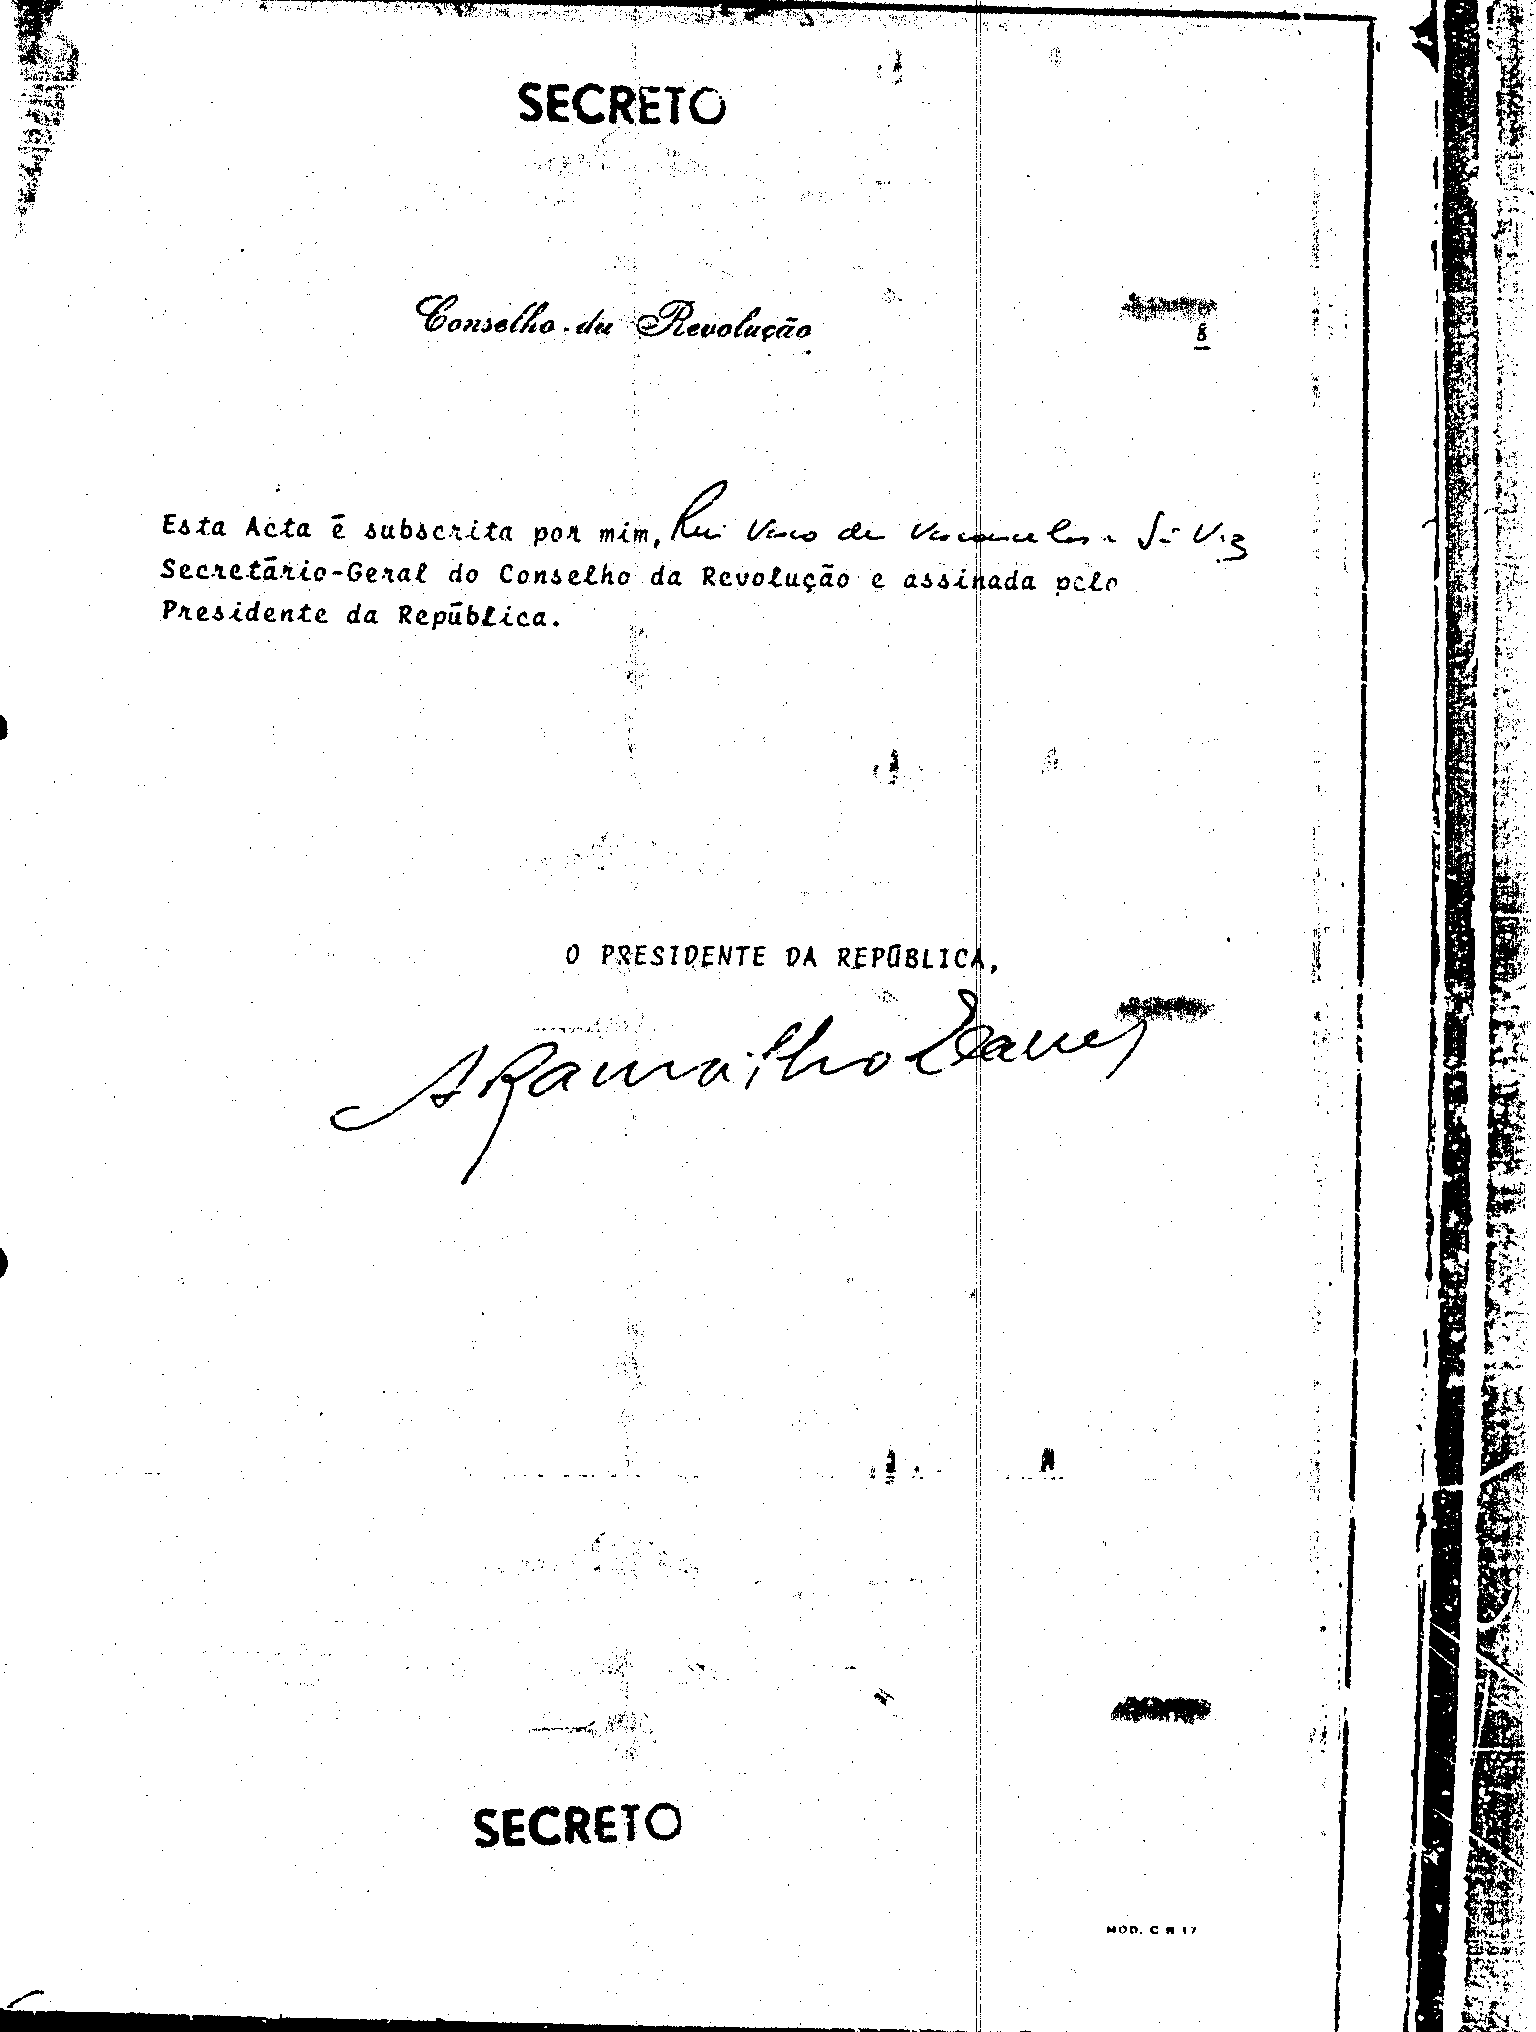 SECRETO
Conselho da Revolução
8
Esta Acta é subscrita por mim, Rui Vasco de Vasconcelos e Sá Vaz
Secretário-Geral do Conselho da Revolução e assinada pelo
Presidente da República.
O PRESIDENTE DA REPÚBLICA,
A Ramalho Eanes
SECRETO
MOD. C R 17